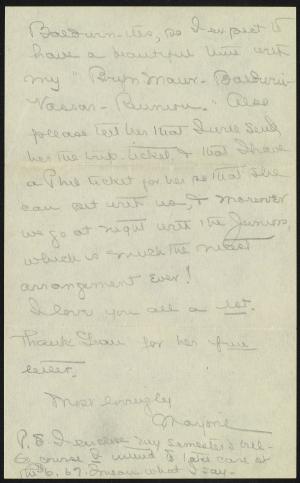 Baldwin-ites, so I expect to
have a beautiful time with
my "Bryn Mawr - Baldwin-
Vassar - Reunion." Also
please tell her that I will send
her the trip-ticket, & that I have
a Phil ticket for her so that she
can sit with us, & moreover
we go at night with the Juniors,
which is much the nicest
arrangement ever!
I love you all a lot.
Thank Fran for her fine
letter.
Most lovingly
Marjorie
P.S. I enclose my semester's bill-
of course I intend to take care of
I mean what I say-